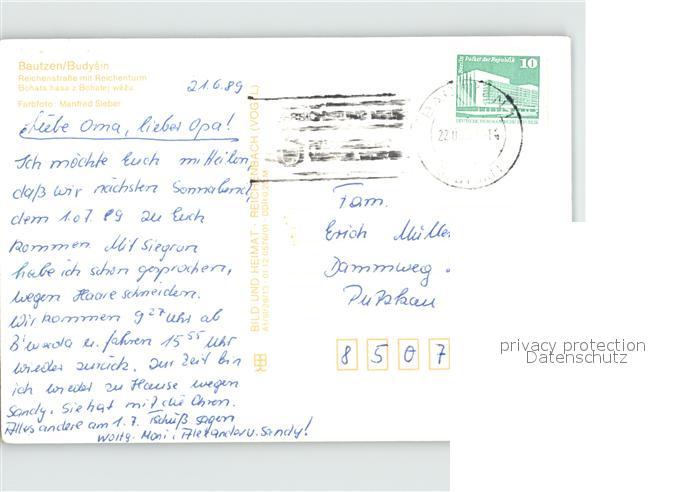 Bautzen/Budyšin
Reichenstraße mit Reichenturm
Bohata hasa z Bohatej wěžu
Farbfoto: Manfred Sieber
21.6.89
Liebe Oma, lieber Opa!
Ich möchte Euch mitteilen,
daß wir nächsten Sonnabend,
dem 1.07.89 zu Euch
kommen. Mit Siegrun
habe ich schon gesprochen,
wegen Haare schneiden.
Wir kommen 9 27 Uhr ab
B'werda u. fahren 15 55 Uhr
wieder zurück. Zur Zeit bin
ich wieder zu Hause wegen
Sandy. Sie hat mit die Ohren.
Alles andere am 1.7. Tschüß sagen
Wolfg. Moni, Alexander u. Sandy!
BILD UND HEIMAT · REICHENBACH (VOGTL)
10
Palast der Republik
DEUTSCHE DEMOKRATISCHE REPUBLIK
BAUTZEN 1
Fam.
Erich Müller
Dammweg
Putzkau
8 5 0 7
privacy protection
Datenschutz